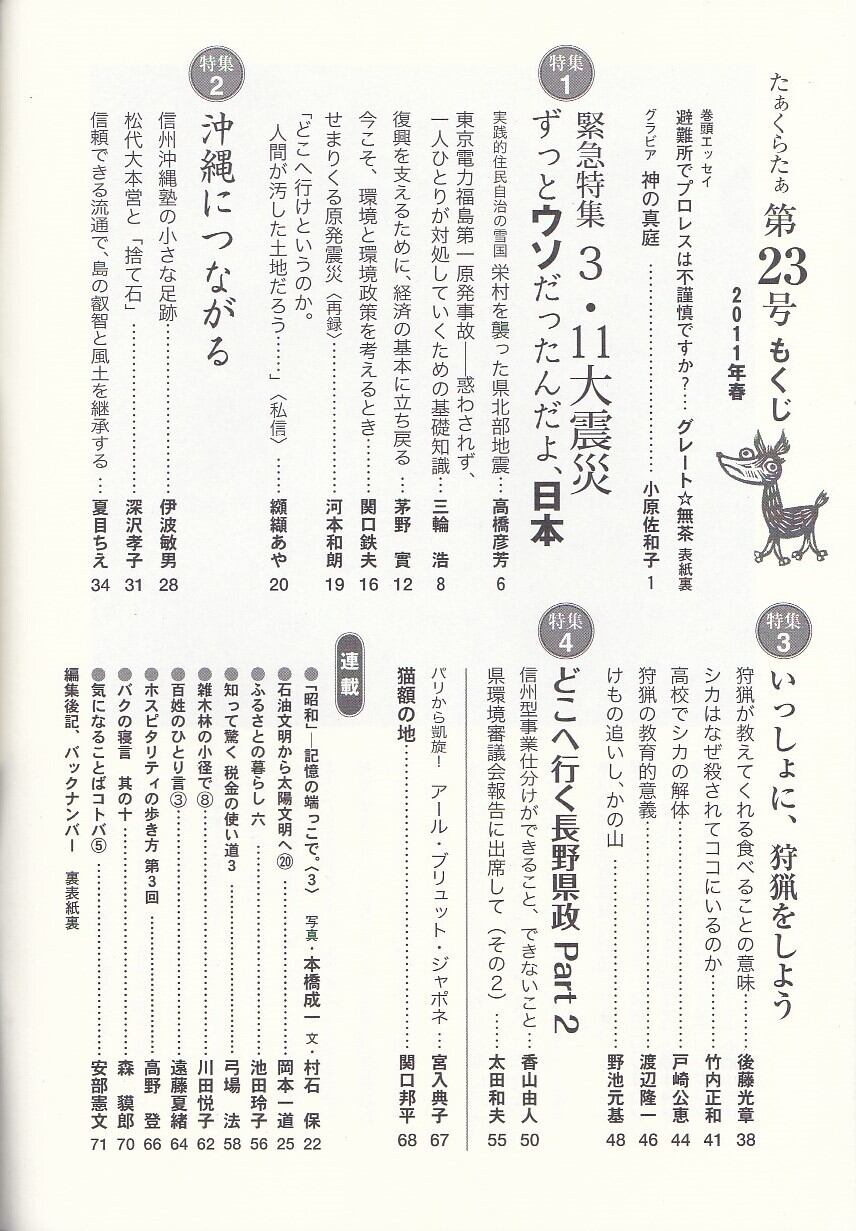 たぁくらたぁ 第23号 もくじ
2011年春
巻頭エッセイ
避難所でプロレスは不謹慎ですか?… グレート☆無茶 表紙裏
グラビア 神の真庭 …………………… 小原佐和子 1
特集1
緊急特集 3・11大震災
ずっとウソだったんだよ、日本
実践的住民自治の雪国 栄村を襲った県北部地震… 高橋彦芳 6
東京電力福島第一原発事故――惑わされず、
一人ひとりが対処していくための基礎知識… 三輪 浩 8
復興を支えるために、経済の基本に立ち戻る … 茅野 實 12
今こそ、環境と環境政策を考えるとき…… 関口鉄夫 16
せまりくる原発震災〈再録〉…………… 河本和朗 19
「どこへ行けというのか。
人間が汚した土地だろう……」〈私信〉…… 纐纈あや 20
特集2
沖縄につながる
信州沖縄塾の小さな足跡……………… 伊波敏男 28
松代大本営と「捨て石」……………… 深沢孝子 31
信頼できる流通で、島の叡智と風土を継承する … 夏目ちえ 34
特集3
いっしょに、狩猟をしよう
狩猟が教えてくれる食べることの意味…… 後藤光章 38
シカはなぜ殺されてココにいるのか……… 竹内正和 41
高校でシカの解体……………………… 戸崎公恵 44
狩猟の教育的意義……………………… 渡辺隆一 46
けもの追いし、かの山 ………………… 野池元基 48
特集4
どこへ行く長野県政 Part 2
信州型事業仕分けができること、できないこと… 香山由人 50
県環境審議会報告に出席して(その2)…… 太田和夫 55
パリから凱旋! アール・ブリュット・ジャポネ … 宮入典子 67
猫額の地……………………………… 関口邦平 68
連載
●「昭和」―記憶の端っこで。〈3〉 写真・本橋成一 文・村石 保 22
●石油文明から太陽文明へ⑳……………… 岡本一道 25
●ふるさとの暮らし 六 ……………… 池田玲子 56
●知って驚く 税金の使い道3 …………… 弓場 法 58
●雑木林の小径で⑧…………………… 川田悦子 62
●百姓のひとり言③…………………… 遠藤夏緒 64
●ホスピタリティの歩き方 第3回 ………… 高野 登 66
●バクの寝言 其の十 ………………… 森 貘郎 70
●気になることばコトバ⑤ ……………… 安部憲文 71
編集後記、バックナンバー 裏表紙裏